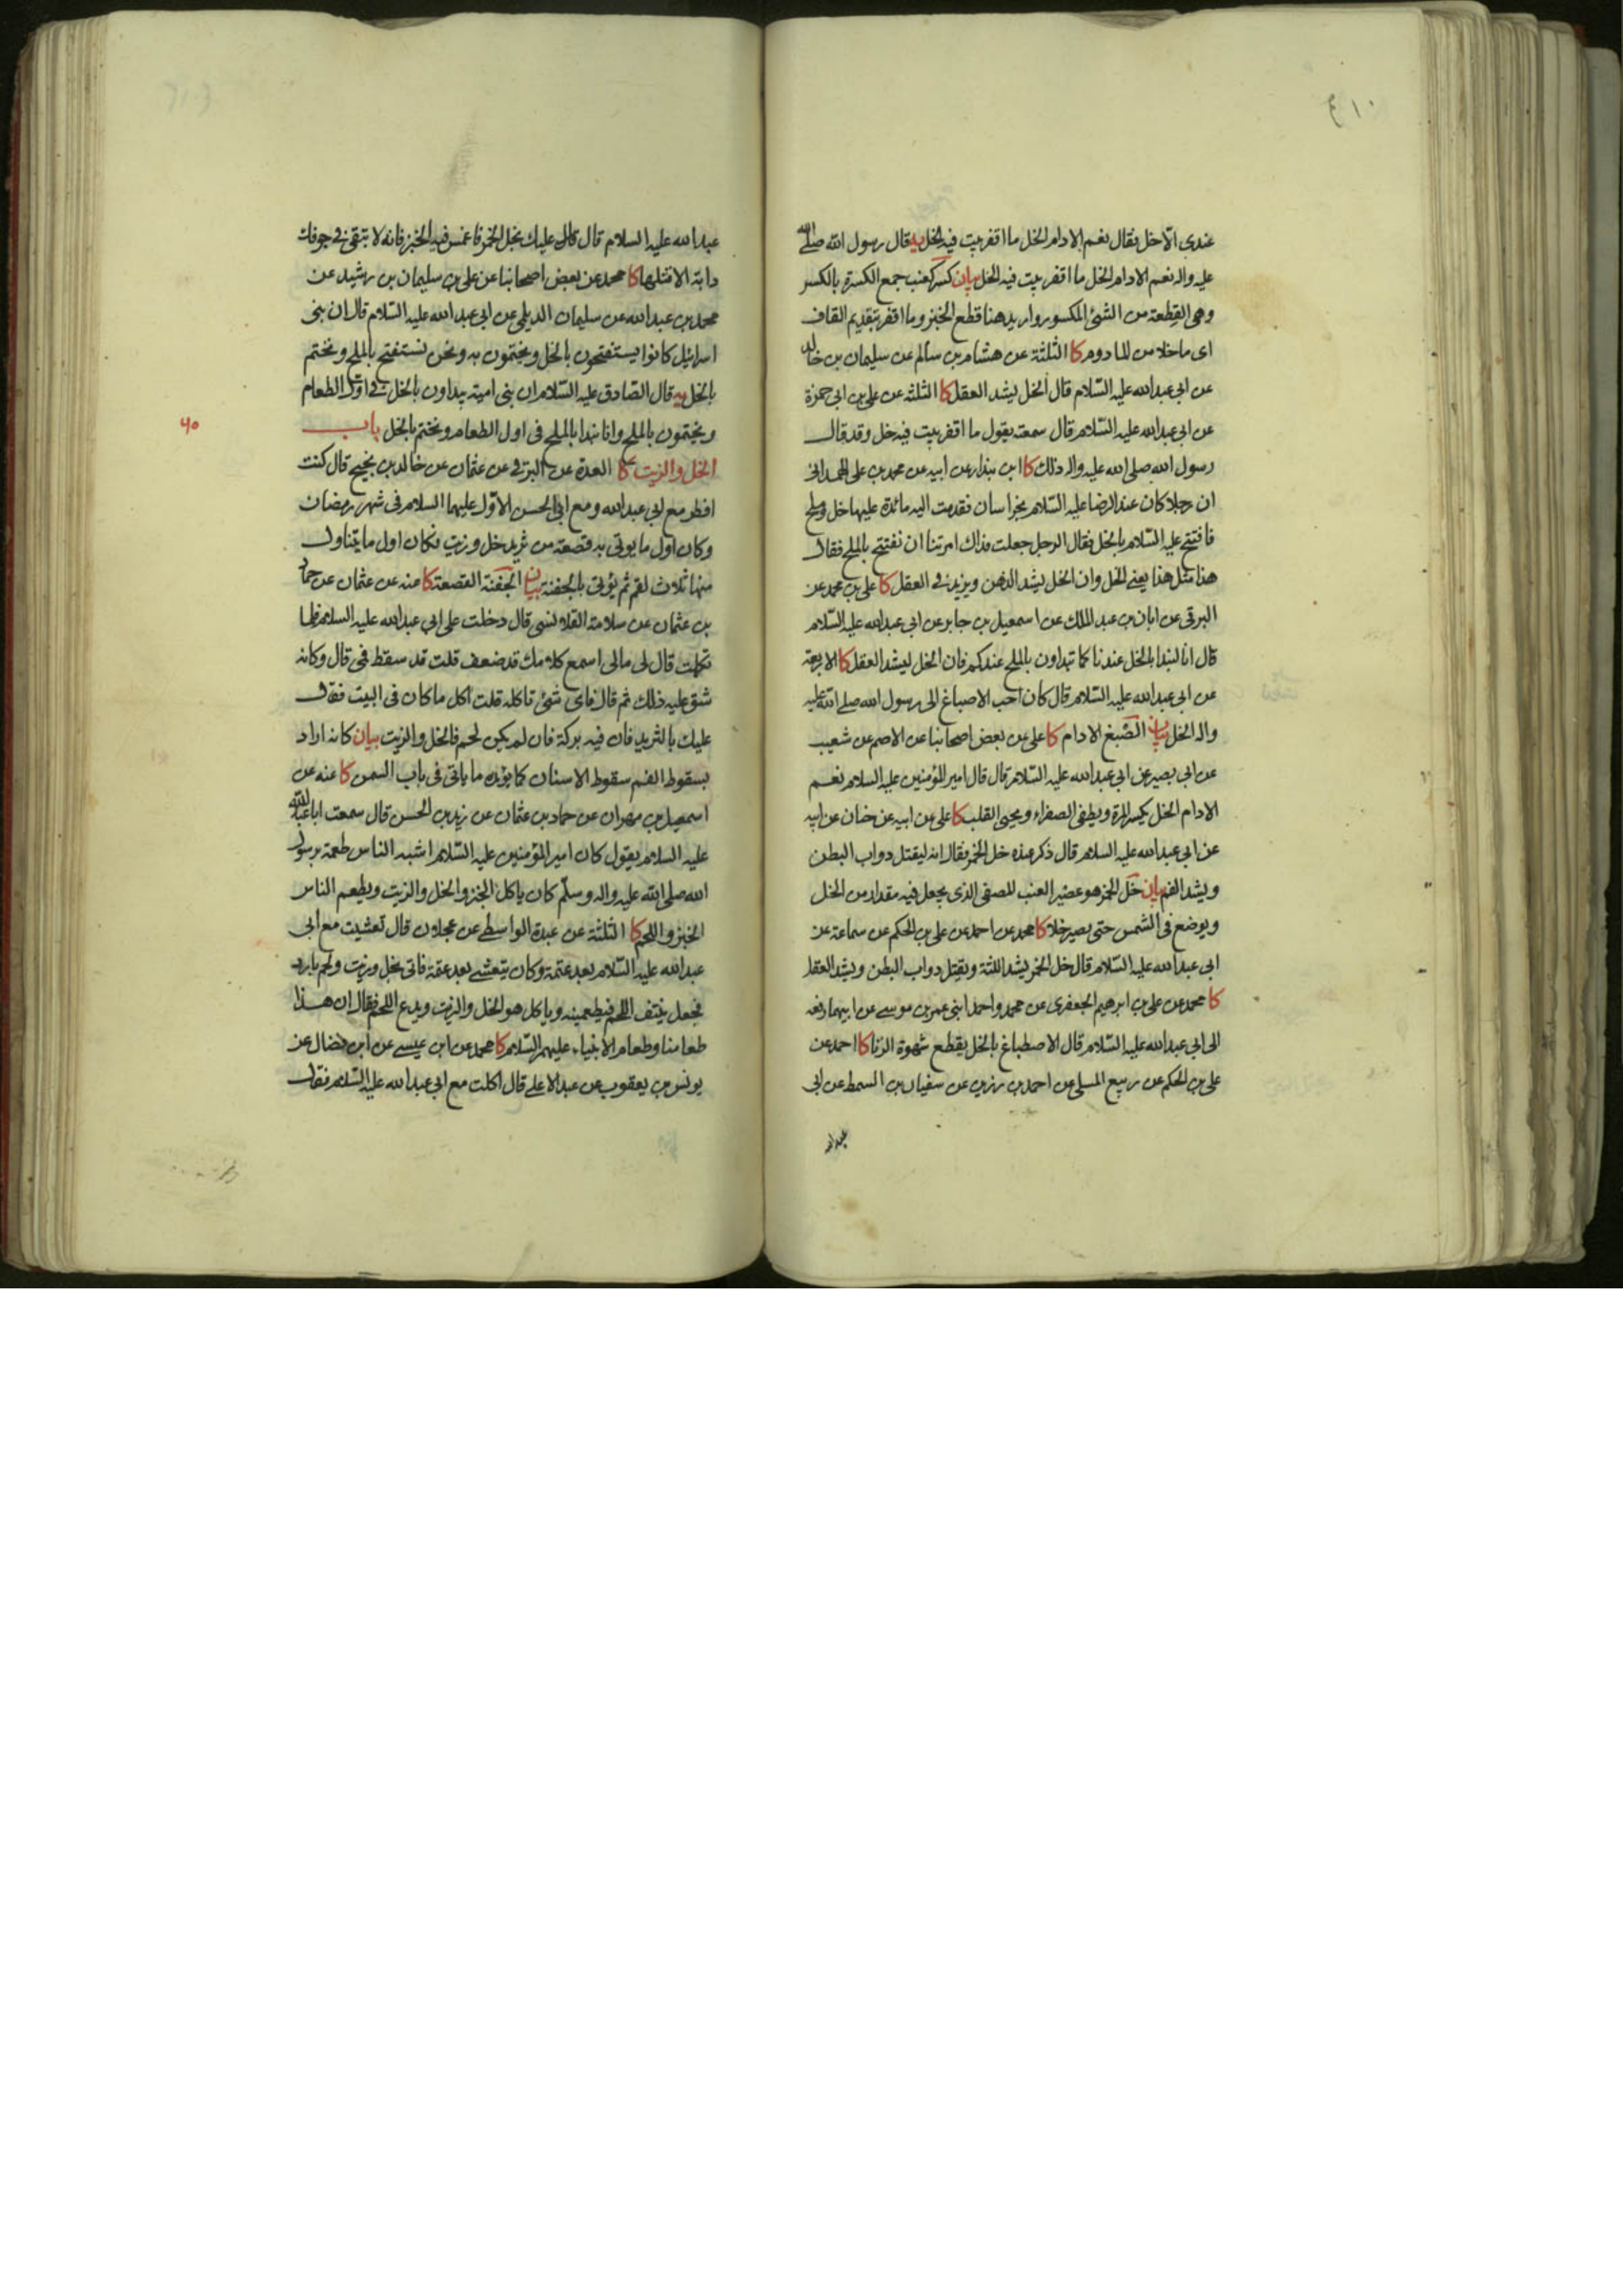 ٤١٠
عندى الا خل فقال نعم الادام الخل ما اقفر بيت فيه الخل يه قال رسول الله صلى الله
عليه واله نعم الادام الخل ما اقفر بيت فيه الخل بيان كسر كعنب جمع الكسرة بالكسر
وهى القطعة من الشئ المكسور واريد هنا قطع الخبز وما اقفر بتقديم القاف
اى ما خلا من المادوم كا الثلثة عن هشام بن سالم عن سليمان بن خالد
عن ابى عبدالله عليه السّلام قال الخل يشد العقل كا الثلثه عن على بن ابى حمزة
عن ابى عبدالله عليه السّلام قال سمعته يقول ما اقفر بيت فيه خل وقد قال
رسول الله صلى الله عليه واله ذلك كا ابن بندار عن ابيه عن محمد بن على الهمدانى
ان رجلا كان عند الرضا عليه السّلام بخراسان فقدمت اليه مائدة عليها خل وملح
فافتتح عليه السّلام بالخل فقال الرجل جعلت فداك امرتنا ان نفتتح بالملح فقال
هذا مثل هذا يعنى الخل وان الخل يشد الذهن ويزيد فى العقل كا على بن محمد عن
البرقى عن ابان بن عبد الملك عن اسمعيل بن جابر عن ابى عبدالله عليه السّلام
قال انا لنبدا بالخل عندنا كما تبداون بالملح عندكم فان الخل ليشد العقل كا الاربعة
عن ابى عبدالله عليه السّلام قال كان احب الاصباغ الى رسول الله صلى الله عليه
واله الخل بيان الصّبغ الادام كا على عن بعض اصحابنا عن الاصم عن شعيب
عن ابى بصير عن ابى عبدالله عليه السّلام قال قال امير المؤمنين عليه السلام نعم
الادام الخل يكسر المرة ويطفى الصفراء ويحيى القلب كا على عن ابيه عن حنان عن ابيه
عن ابى عبدالله عليه السلام قال ذكر عنده خل الخمر فقال انه ليقتل دواب البطن
ويشد الفم بيان خل الخمر هو عصير العنب المصفى الذى يجعل فيه مقدار من الخل
ويوضع فى الشمس حتى يصير خلا كا محمد عن احمد عن على بن الحكم عن سماعة عن
ابى عبدالله عليه السّلام قال خل الخمر يشد اللثة ويقتل دواب البطن ويشد العقل
كا محمد عن على بن ابرهيم الجعفرى عن محمد واحمد ابنى عمر بن موسى عن ابيهما رفعه
الى ابى عبدالله عليه السّلام قال الاصطباغ بالخل يقطع شهوة الزنا كا احمد عن
على بن الحكم عن ربيع المسلى عن احمد بن رزين عن سفيان بن السمط عن ابى
عبدالله
عبدالله عليه السلام قال قال عليك بخل الخمر فاغمس فيه الخبز فانه لا يبقى فى جوفك
دابة الا قتلها كا محمد عن بعض اصحابنا عن على بن سليمان بن رشيد عن
محمد بن عبدالله عن سليمان الديلمى عن ابى عبدالله عليه السّلام قال ان بنى
اسرائيل كانوا يستفتحون بالخل ويختمون به ونحن نستفتح بالملح ونختم
بالخل يه قال الصادق عليه السّلام ان بنى امية يبداون بالخل فى اول الطعام
ويختمون بالملح وانا نبدا بالملح فى اول الطعام ونختم بالخل باب
٤٥
الخل والزيت كا العدة عن البرقى عن عثمان عن خالد بن نجيح قال كنت
افطر مع ابى عبدالله ومع ابى الحسن الاوّل عليهما السلام فى شهر رمضان
وكان اول ما يوتى به قصعة من ثريد خل وزيت فكان اول ما يتناول
منها ثلاث لقم ثم يؤتى بالجفنة بيان الجفنة القصعة كا عنه عن عثمان عن حماد
بن عثمان عن سلامة القلانسى قال دخلت على ابى عبدالله عليه السلام فلما
تكلمت قال لى مالى اسمع كلامك قد ضعف قلت قد سقط فمى قال وكانه
شق عليه ذلك ثم قال فاى شئ تاكله قلت آكل ما كان فى البيت فقال
عليك بالثريد فان فيه بركة فان لم يكن لحم فالخل والزيت بيان كانه اراد
بسقوط الفم سقوط الاسنان كما يؤيده ما ياتى فى باب السمن كا عنه عن
اسمعيل بن مهران عن حماد بن عثمان عن زيد بن الحسن قال سمعت ابا عبدالله
عليه السلام يقول كان امير المؤمنين عليه السّلام اشبه الناس طعمة برسول
الله صلى الله عليه واله وسلّم كان ياكل الخبز والخل والزيت ويطعم الناس
الخبز واللحم كا الثلثة عن عبدة الواسطى عن عجلان قال تعشيت مع ابى
عبدالله عليه السّلام بعد عتمة وكان يتعشى بعد عتمة فاتى بخل وزيت ولحم بارد
فجعل ينتف اللحم فيطعمينه وياكل هو الخل والزيت ويدع اللحم فقال ان هذا
طعامنا وطعام الانبياء عليهم السّلام كا محمد عن ابن عيسى عن ابن فضال عن
يونس بن يعقوب عن عبد الاعلى قال اكلت مع ابى عبدالله عليه السّلام فقال